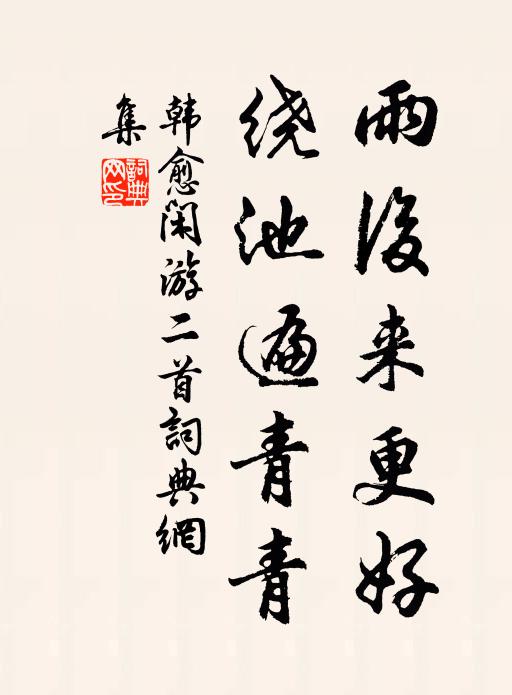 雨後来更好
绕池遍青青
韩愈闲游二首詞典網
集
詞典
网印